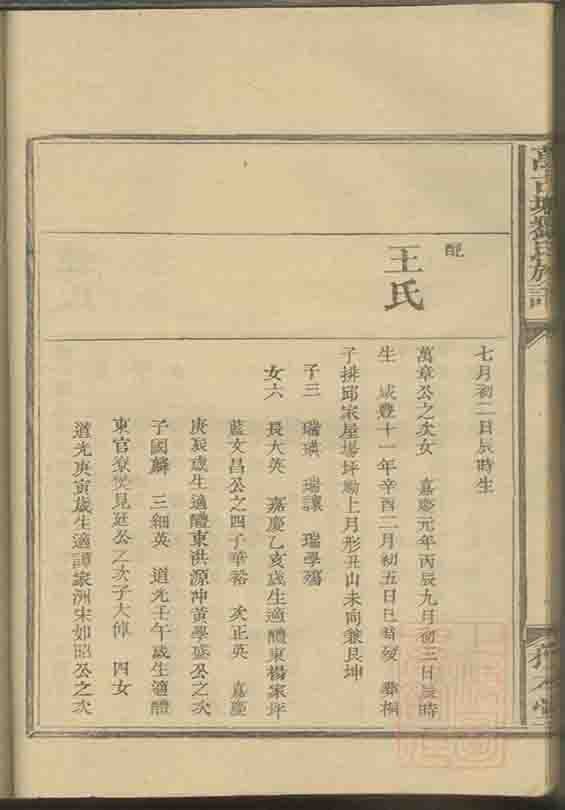 七月初二日辰時生
配
王氏
萬章公之次女 嘉慶元年丙辰九月初三日辰時
生 咸豐十一年辛酉二月初五日巳時歿 葬桐
子排邱家屋場坪勘上月形丑山未向兼艮坤
子三 瑞瑛 瑞讓 瑞學殤
女六 長大英 嘉慶乙亥歲生適醴東楊家坪
藍文昌公之四子華裕 次正英 嘉慶
庚辰歲生適醴東洪源冲黃學 公之次
子國麟 三細英 道光壬午歲生適醴
東官寮 見廷公之次子大偉 四女
道光庚寅歲生適譚家洲宋 昭公之次